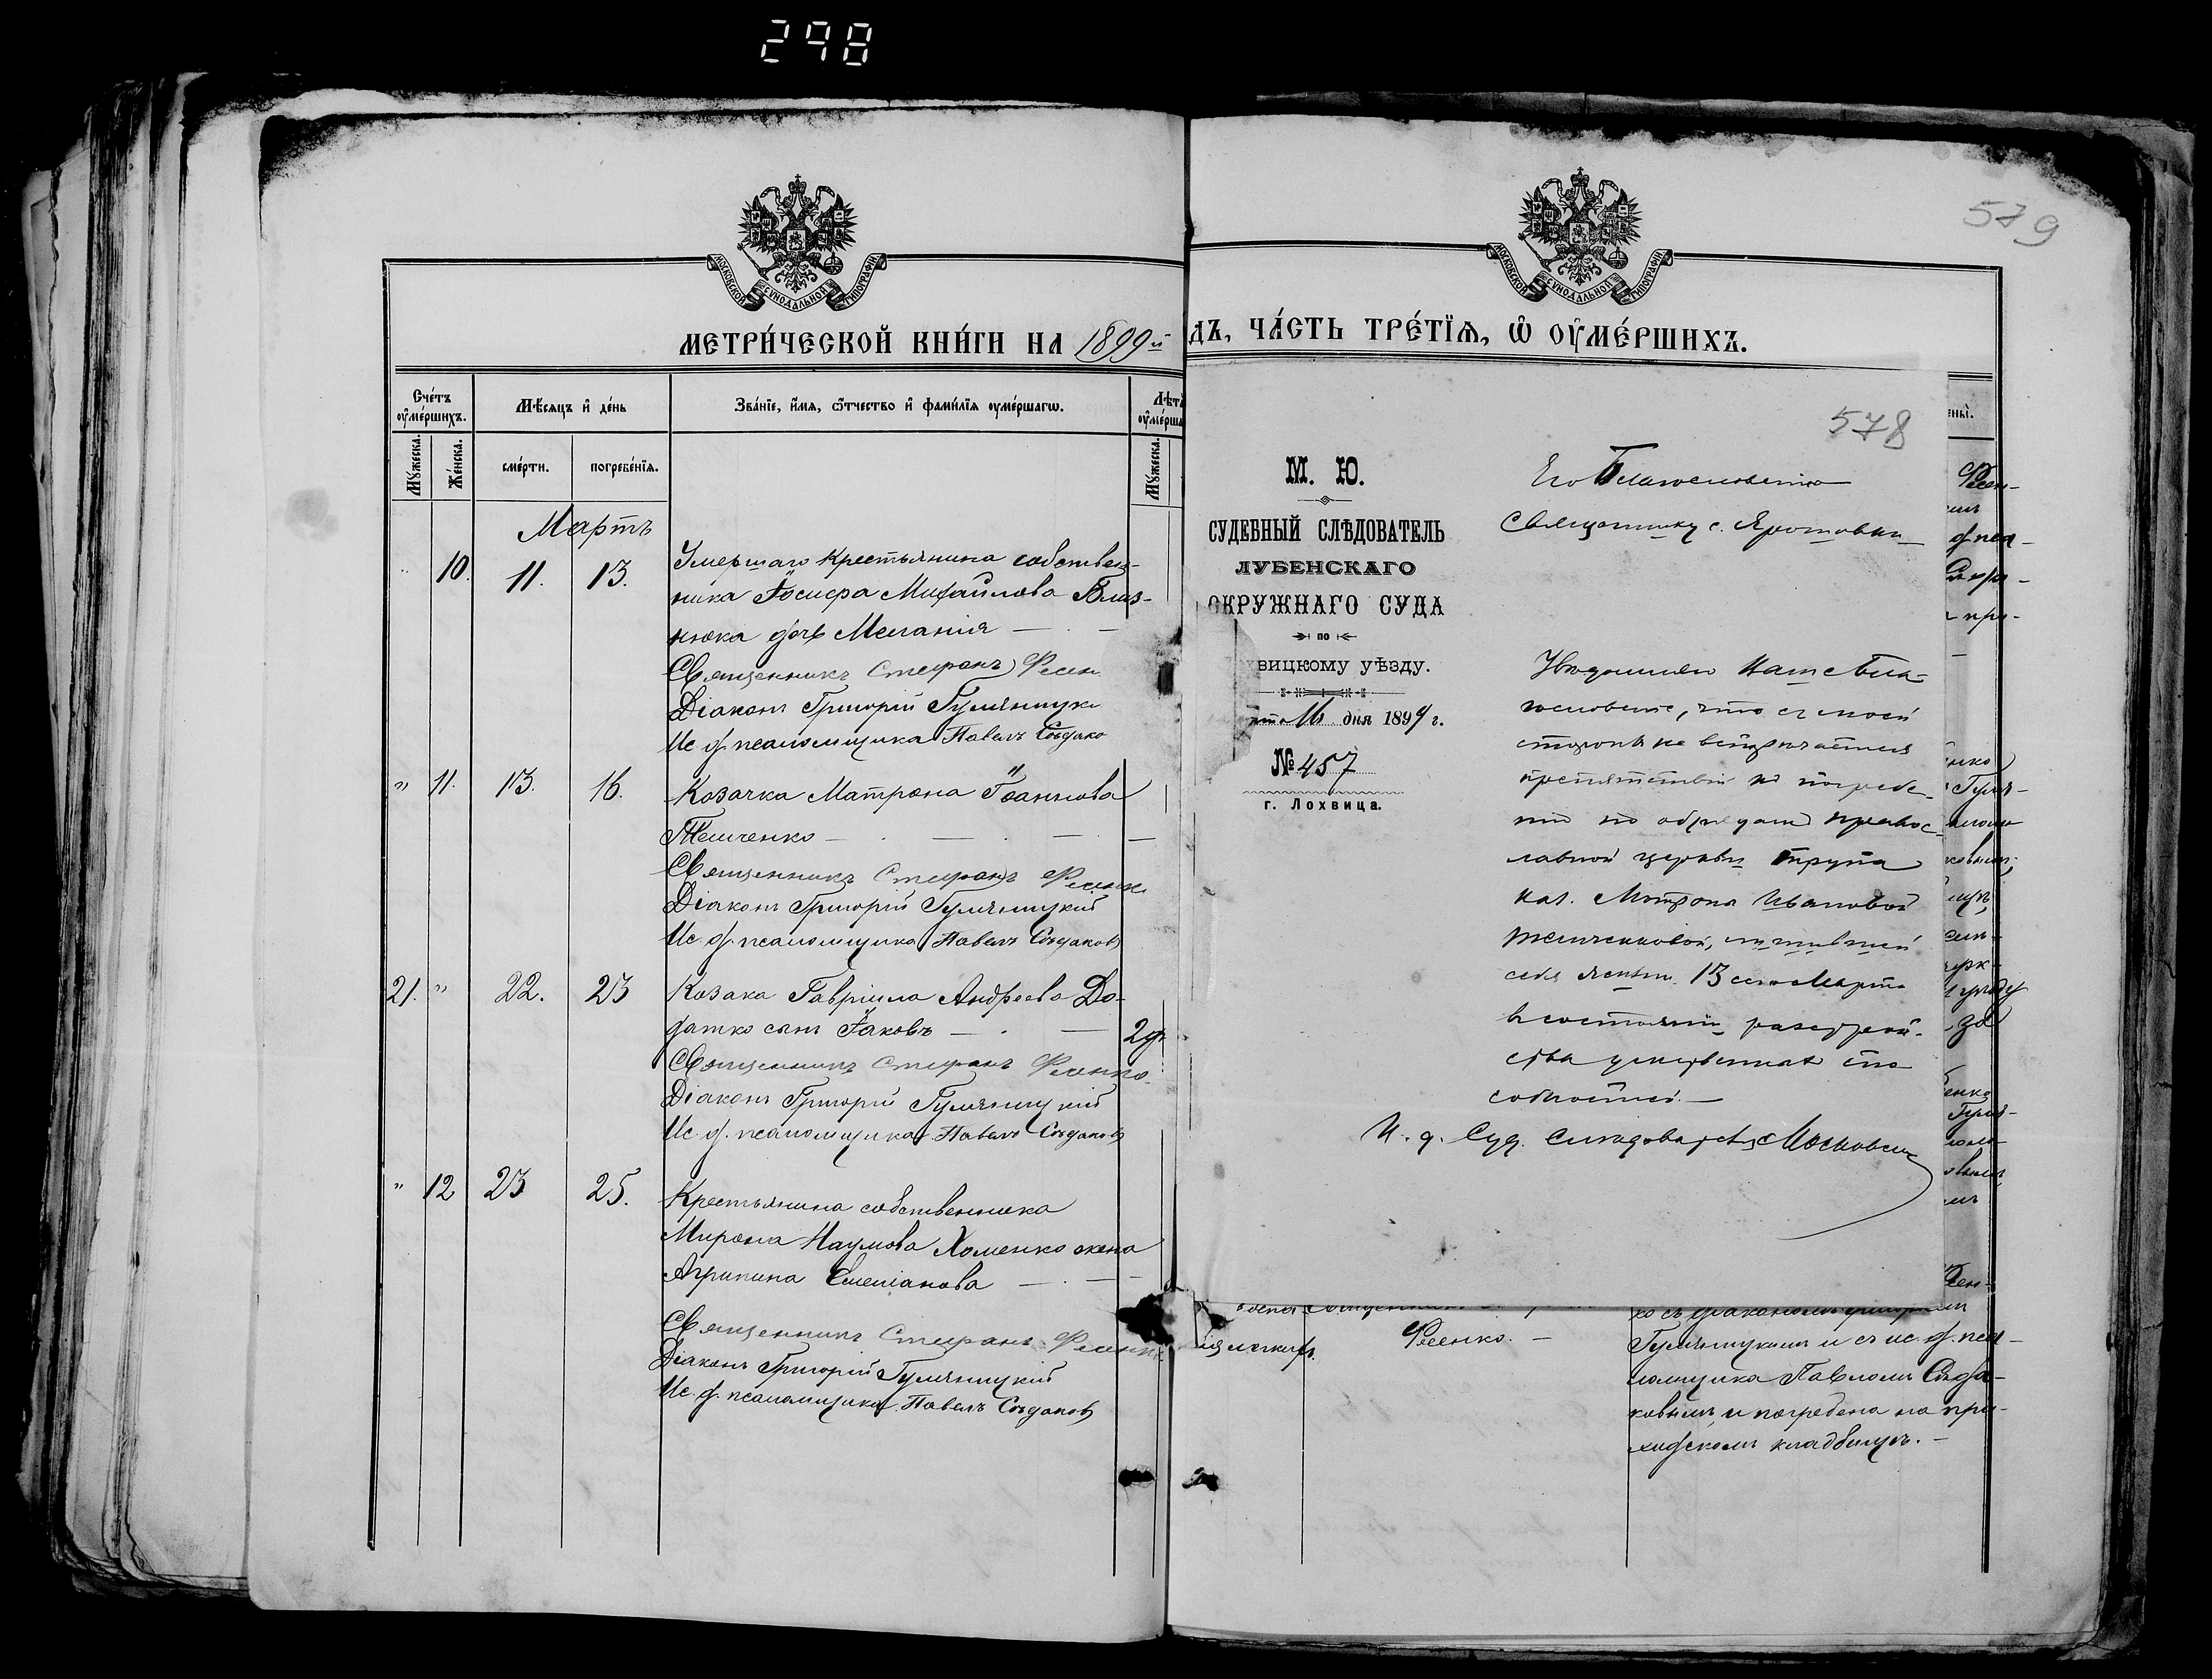 298
МОСКОВСКОЙ СУНОДАЛЬНОЙ ТИПОГРАФІИ
МЕТРИ́ЧЕСКОЙ КНИ́ГИ НА 1899й
Сче́тъ оу҆ме́ршихъ.
Мѣ́сяцъ и҆ де́нь
Зва́нїе, и҆́мѧ, ѻ҆́тчество и҆ фами́лїѧ оу҆ме́ршагѡ.
Лѣт
оу҆ме́рша
Мꙋ́жеска.
Же́нска.
сме́рти.
погребе́нїѧ.
Мꙋ́жеска.
Мартъ
10. 11. 13. Умершаго крестьянина собствен-
ника Іосифа Михайлова Близ-
нюка дочь Меланія
Священникъ Стефанъ Фесен
Діаконъ Григорій Гуляницкі
Ис. д. псаломщика Павелъ Съдако
" 11. 13. 16. Козачка Матрона Іоаннова
Темченко
Священникъ Стефанъ Фесенк
Діаконъ Григорій Гуляницкій
Ис. д. псаломщика Павелъ Съдаковъ
21. " 22. 23 Козака Гавріила Андреева До-
датко сынъ Іаковъ 2 д.
Священникъ Стефанъ Фесенко.
Діаконъ Григорій Гуляницкій
Ис. д. псаломщика Павелъ Съдаковъ
" 12 23 25. Крестьянина собственника
Мирона Наумова Хоменко жена
Агрипина Емеліанова
Священникъ Стефанъ Фесенк
Діаконъ Григорій Гуляницкій
Ис. д. псаломщика Павелъ Съдаковъ
579
МОСКОВСКОЙ СУНОДАЛЬНОЙ ТИПОГРАФІИ
дъ, ЧА́СТЬ ТРЕ́ТЇѦ, Ѽ ОУ҆МЕ́РШИХЪ.
578
М. Ю.
СУДЕБНЫЙ СЛѢДОВАТЕЛЬ
ЛУБЕНСКАГО
ОКРУЖНАГО СУДА
ПО
вицкому уѣзду.
рта 16 дня 1899 г.
№ 457
г. Лохвица.
Его Благословенію
Священнику с. Яротовки
Увѣдомляю Ваше Бла-
гословеніе, что съ моей
стороны не встрѣчается
препятствій къ погребе-
нію по обрядамъ правос-
лавной церкви трупа
каз. Мотроны Ивановой
Темченковой, лишившей
себя жизни 13 сего Марта
въ состояніи разстрой-
ства умственныхъ спо
собностей.
И. д. Суд. Слѣдователя Московск
ко съ діакономъ Григоріем
Гуляницкимъ и съ ис. д. пса-
ломщика Павломъ Съда-
ковымъ и погребена на при-
ходскомъ кладбищѣ.
Фесенко.